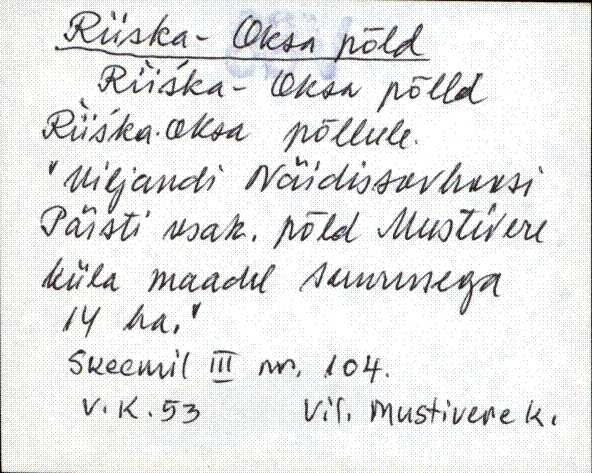 Riiska- Oksa põld
Riiśka- Oksa põlld
Riiśka-Oksa põllule.
"Viljandi Näidissovhoosi
Päisti osak. põld Mustivere
küla maadel suurusega
14 ha."
Skeemil III nr. 104.
V.K.53 Vil. Mustivere k.